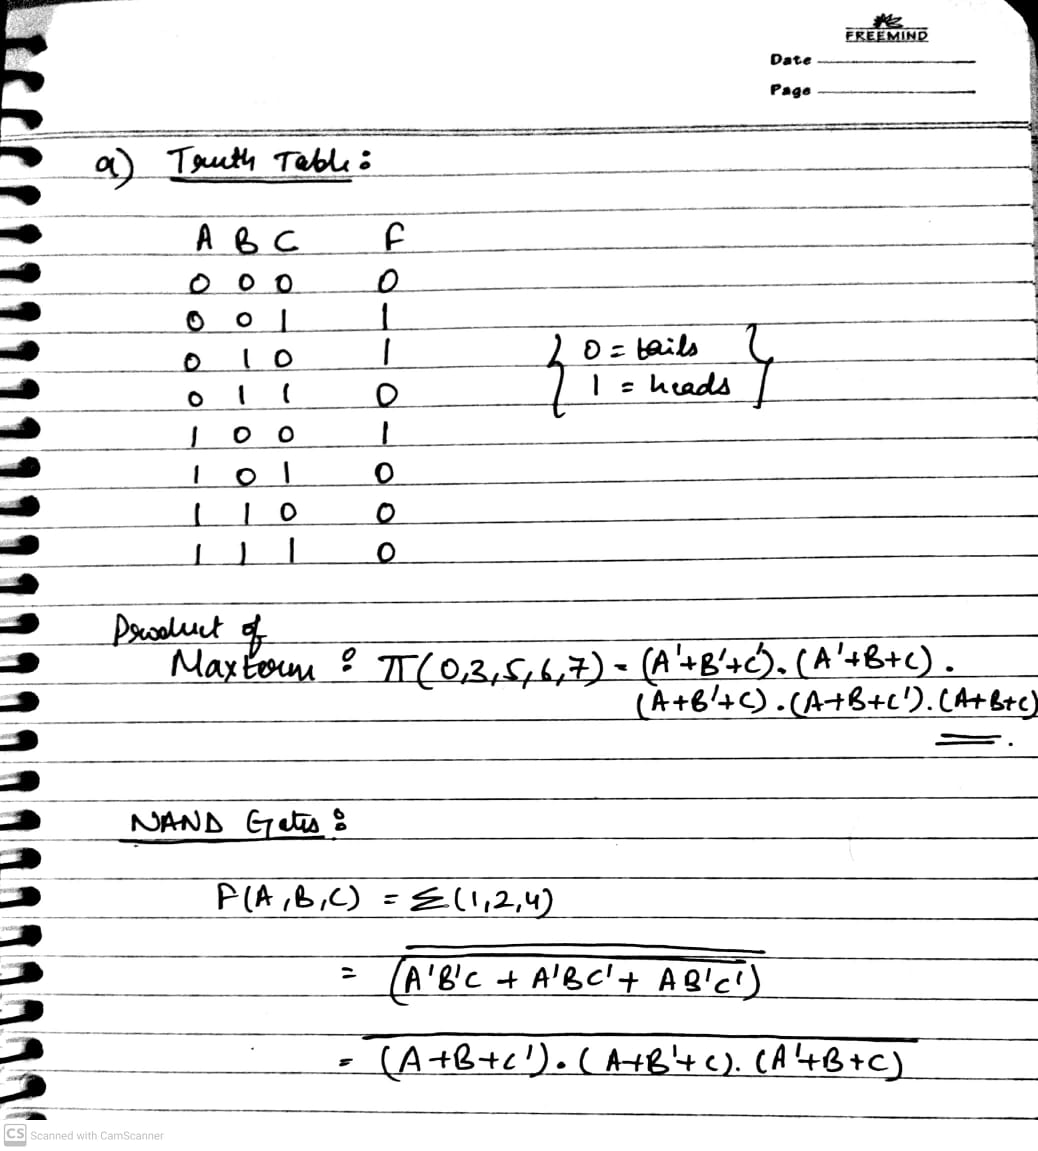 FREEMIND
Date
Page
a) Truth Table :
A B C F
0 0 0 0
0 0 1 1
0 1 0 1
0 1 1 0
1 0 0 1
1 0 1 0
1 1 0 0
1 1 1 0
{ 0 = tails }
{ 1 = heads }
Product of
Maxterm : π(0,3,5,6,7) = (A'+B'+C'). (A'+B+C) .
(A+B'+C) . (A+B+C'). (A+B+C)
NAND Gates :
F(A,B,C) = Σ(1,2,4)
= (A'B'C + A'BC' + AB'C')
= (A+B+C') . (A+B'+C). (A'+B+C)
CS Scanned with CamScanner